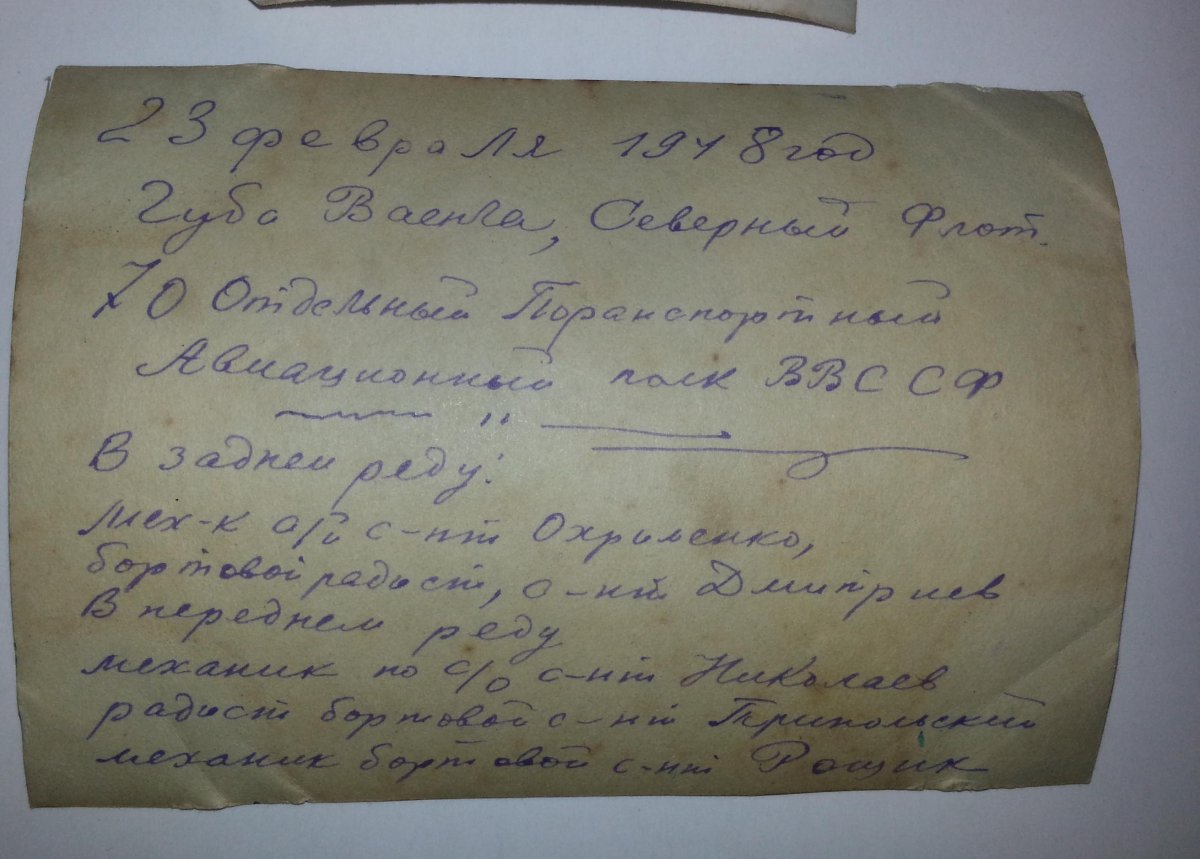 23 февраля 1948 год
Губа Ваенга, Северный Флот.
70 Отдельный Потранспортный
Авиационный полк ВВС СФ
В заднем реду:
мех-к с-нт Охрименко,
бортовой радист, с-нт Дмитриев
В переднем реду
механик по с/о с-нт Николаев
радист бортовой с-нт Трипольский
механик бортовой с-нт Рощик